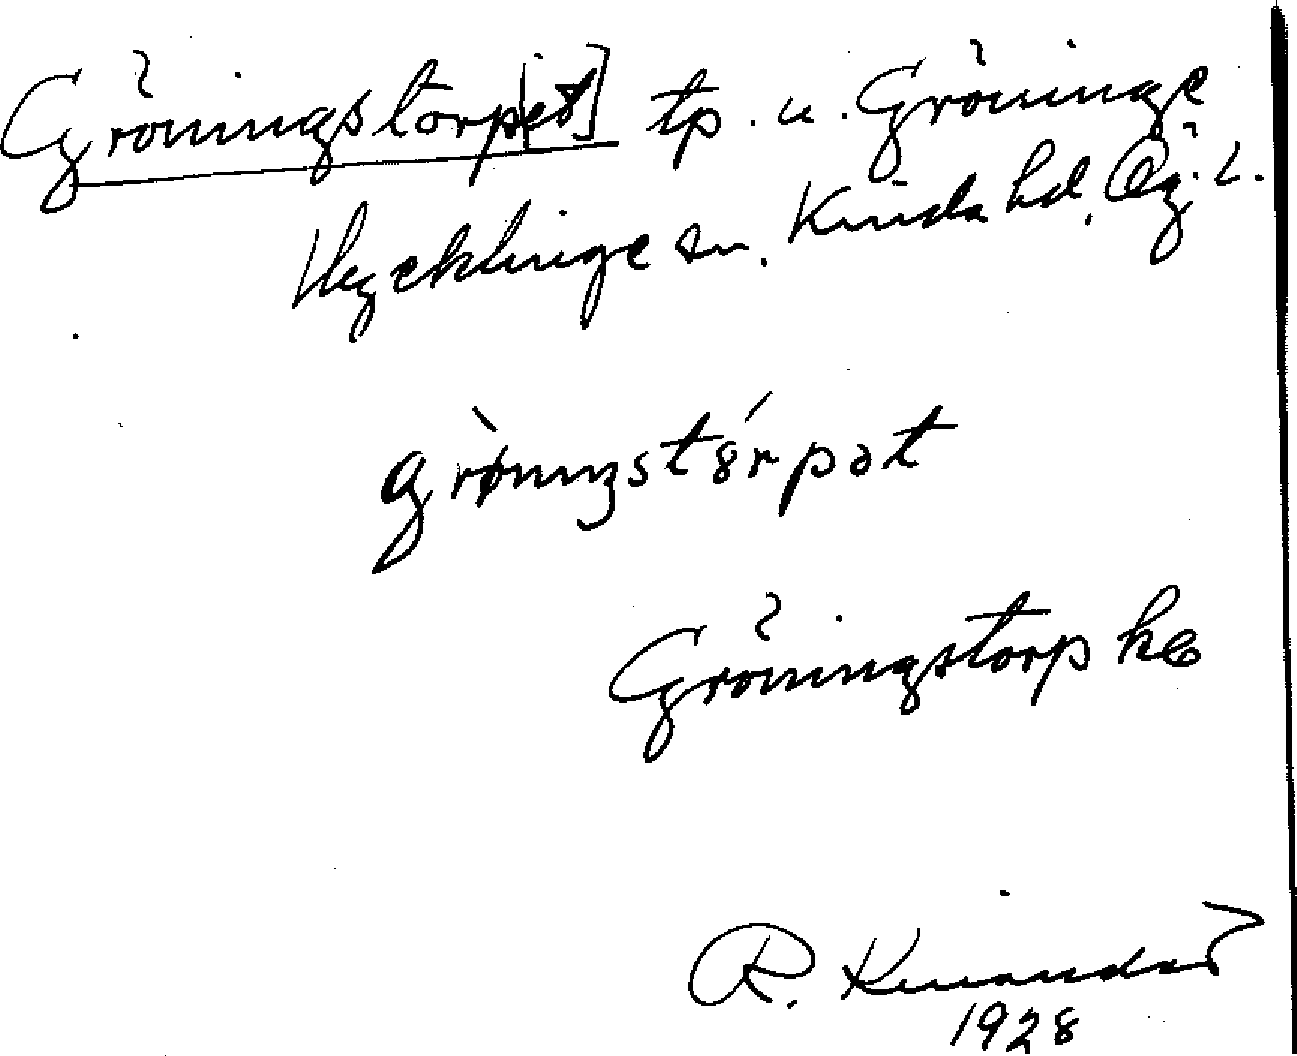 Gröningstorp[et] tp. u. Gröninge
Hycklinge sn. Kinda hd. Ög. L.
grönıŋstórpət
Gröningstorp ke
R. Kinander
1928